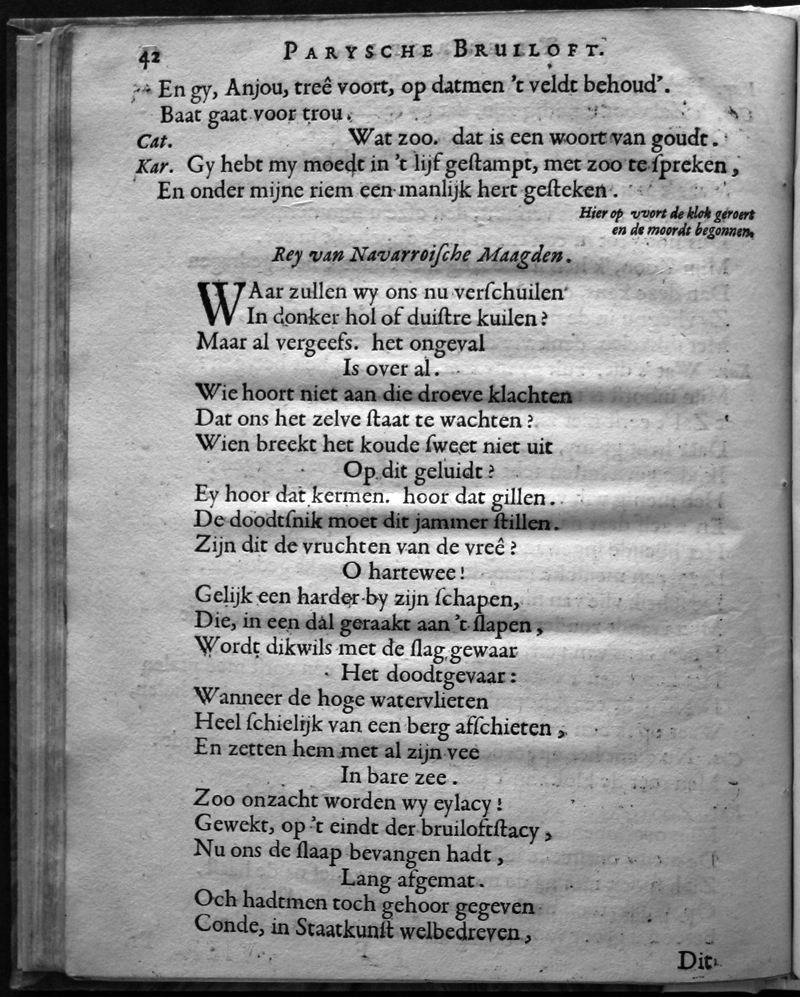 42 PARYSCHE BRUILOFT.
En gy, Anjou, treê voort, op datmen 't veldt behoud'.
Baat gaat voor trou.
Cat. Wat zoo. dat is een woort van goudt.
Kar. Gy hebt my moedt in 't lijf geſtampt, met zoo te ſpreken,
En onder mijne riem een manlijk hert geſteken.
Hier op vvort de klok geroert
en de moordt begonnen.
Rey van Navarroiſche Maagden.
WAar zullen wy ons nu verſchuilen
In donker hol of duiſtre kuilen?
Maar al vergeefs. het ongeval
Is over al.
Wie hoort niet aan die droeve klachten
Dat ons het zelve ſtaat te wachten?
Wien breekt het koude ſweet niet uit
Op dit geluidt?
Ey hoor dat kermen. hoor dat gillen.
De doodtſnik moet dit jammer ſtillen.
Zijn dit de vruchten van de vreê?
O hartewee!
Gelijk een harder by zijn ſchapen,
Die, in een dal geraakt aan 't ſlapen,
Wordt dikwils met de ſlag gewaar
Het doodtgevaar:
Wanneer de hoge watervlieten
Heel ſchielijk van een berg afſchieten,
En zetten hem met al zijn vee
In bare zee.
Zoo onzacht worden wy eylacy!
Gewekt, op 't eindt der bruiloftſtacy,
Nu ons de ſlaap bevangen hadt,
Lang afgemat.
Och hadtmen toch gehoor gegeven
Conde, in Staatkunſt welbedreven,
Dit